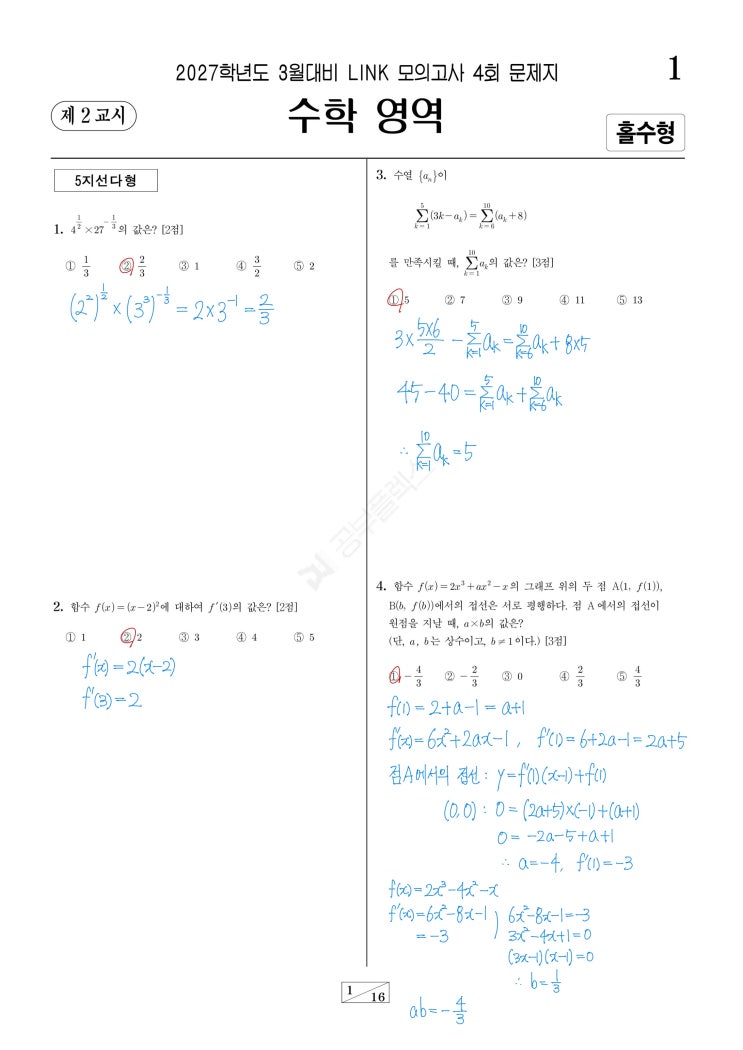 2027학년도 3월대비 LINK 모의고사 4회 문제지
1
제 2 교시
수학 영역
홀수형
5지선다형
1. 4^{1/2}×27^{-1/3}의 값은? [2점]
① 1/3 ② 2/3 ③ 1 ④ 3/2 ⑤ 2
(2²)^{1/2}×(3³)^{-1/3}=2×3^{-1}=2/3
2. 함수 f(x)=(x-2)²에 대하여 f′(3)의 값은? [2점]
① 1 ② 2 ③ 3 ④ 4 ⑤ 5
f′(x)=2(x-2)
f′(3)=2
3. 수열 {aₙ}이
∑_{k=1}^{5}(3k-a_k)=∑_{k=6}^{10}(a_k+8)
를 만족시킬 때, ∑_{k=1}^{10}a_k의 값은? [3점]
① 5 ② 7 ③ 9 ④ 11 ⑤ 13
3×5×6/2-∑_{k=1}^{5}a_k=∑_{k=6}^{10}a_k+8×5
45-40=∑_{k=1}^{5}a_k+∑_{k=6}^{10}a_k
∴ ∑_{k=1}^{10}a_k=5
공부플렉스
4. 함수 f(x)=2x³+ax²-x의 그래프 위의 두 점 A(1, f(1)),
B(b, f(b))에서의 접선은 서로 평행하다. 점 A에서의 접선이
원점을 지날 때, a×b의 값은?
(단, a, b는 상수이고, b≠1이다.) [3점]
① -4/3 ② -2/3 ③ 0 ④ 2/3 ⑤ 4/3
f(1)=2+a-1=a+1
f′(x)=6x²+2ax-1, f′(1)=6+2a-1=2a+5
점A에서의 접선: y=f′(1)(x-1)+f(1)
(0,0): 0=(2a+5)×(-1)+(a+1)
0=-2a-5+a+1
∴ a=-4, f′(1)=-3
f(x)=2x³-4x²-x
f′(x)=6x²-8x-1 ) 6x²-8x-1=-3
=-3 3x²-4x+1=0
(3x-1)(x-1)=0
∴ b=1/3
ab=-4/3
1
16